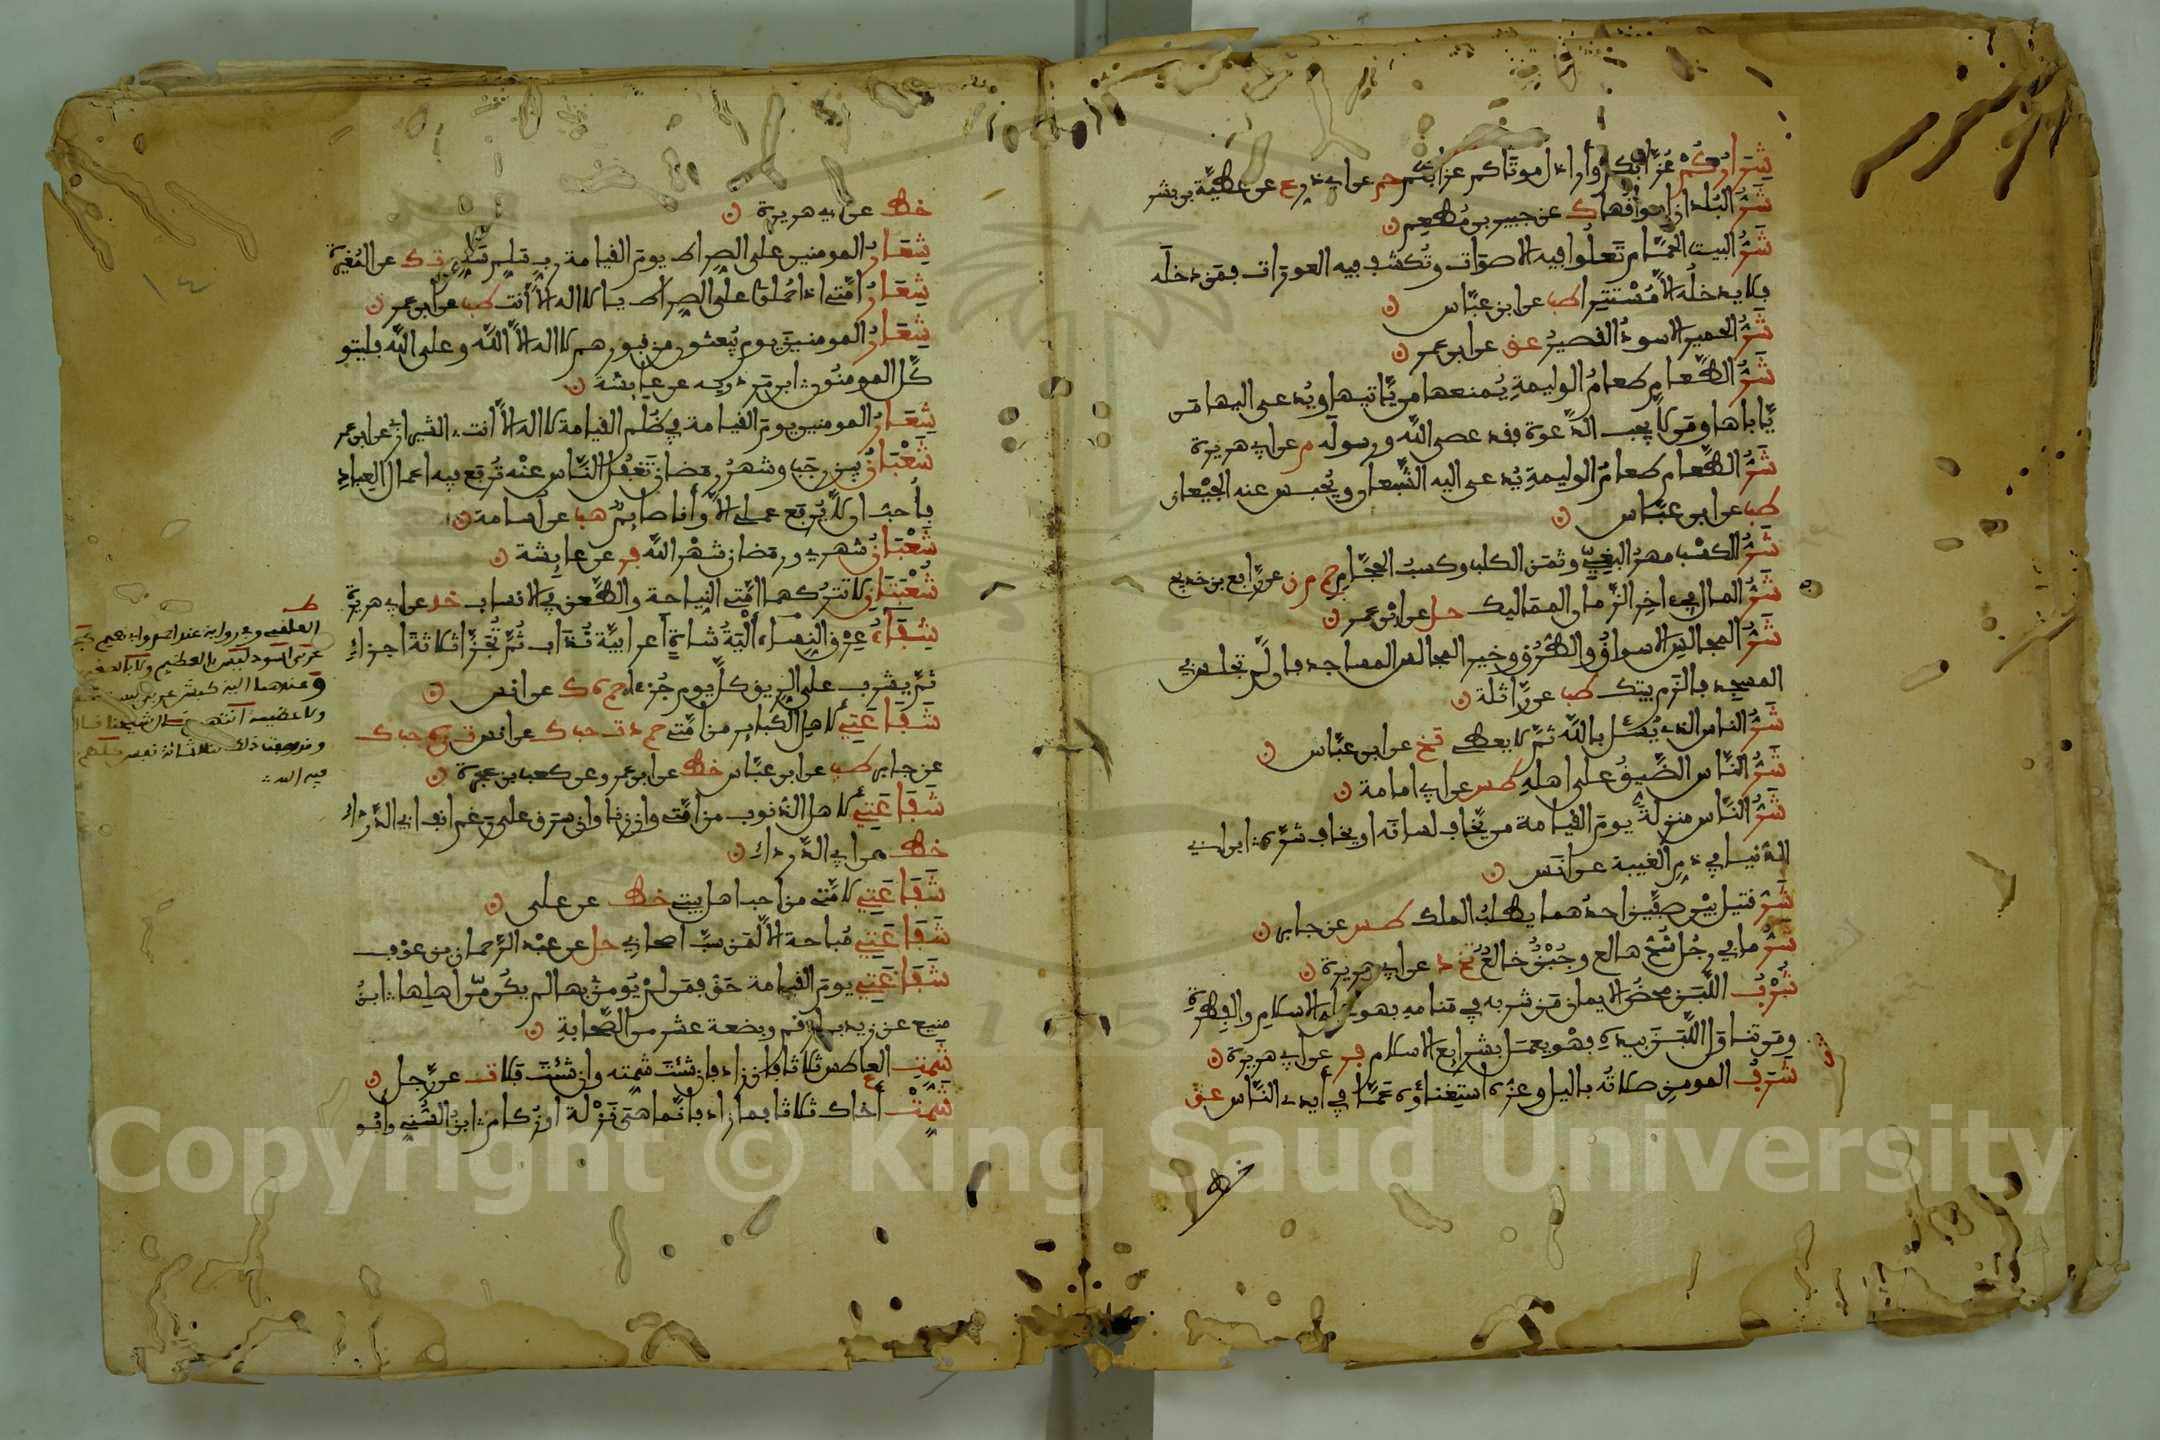 شِرَارُكُمْ عُزَّابُكُمْ وأراذل موتاكم عزابكم حم عن أبي ذر ع عن عطيّة بن بشر
شَرُّ البُلدان أسواقُها ك عن جبير بن مُطعِم ن
شَرُّ البيت الحمّام تَعلُوا فيه الاصوَات وتُكشف فيه العورَات فمَن دخلَه
فلا يدخلُه الّا مُسْتَتِرا طب عن ابن عبّاس ن
شَرُّ الحمير الاسودُ القصيرُ عق عن ابن عمر ن
شَرُّ الطّعام طعامُ الوليمةِ يُمنعها من يّاتيها ويُدعى اليها مَن
يّاباها ومَن لا يجب الدّعوة فقد عصى اللّه ورسولَه م عن أبي هريرة
شَرُّ الطّعام طعامُ الوليمةِ يُدعى اليه الشّبعان ويُحبس عنه الجيْعان
طب عن ابن عبّاس ن
شَرُّ الكسْب مهرُ البغيّ وثمَن الكلب وكسبُ الحجّام حم م ن عن رّافع بن خديج
شَرُّ المال في اخِر الزّمان المماليك حل عن ابن عمر ن
شَرُّ المجالسِ الاسواقُ والطّرُق وخير المجالس المساجد فان لّم تجلس في
المسجد فالزم بيتك طب عن وّاثلَة ن
شَرُّ الناس الذي يُسئل باللّه ثمّ لا يعطي تخ عن ابن عبّاس ن
شَرُّ النّاس الضّيقُ على اهلِه طس عن أبي امامة ن
شَرُّ النّاس منزلةً يومَ القيامة من يّخاف لسانَه او يخاف شرّه ابن ابي
الدُّنيا في ذم الغيبة عن انَس ن
شَرُّ قتيل بيْن صفّين احدُهما يطلبُ الملك طس عن جابر ن
شَرُّ ما في رجُل شُحّ هالع وجُبْنٌ خَالعٌ تخ د عن أبي هريرة ن
شُرْبُ اللّبَن محضُ الايمان مَن شربه في مَنامه فهو على الاسلام والفِطرة
ومَن تناول اللّبَن بيدِه فهْو يعمَل بشرايع الاسلام فر عن أبي هريرة ن
شَرَفُ المومنِ صلاتُه بالليل وعزّه استِغناؤه عَمّا في أيدي النّاس عق
خط
خط عن أبي هريرة ن
شِعَارُ المومنين على الصِراط يومَ القيامة رب سَلِّم سَلِّم ت ك عن المُغيرة
شِعَارُ امّتي اذا حُملوا على الصِراط يا لا اله الّا أنت طب عن ابن عمر ن
شِعَارُ المومنينَ يوم يُبعثون من قبورهم لا اله الّا اللّه وعلى اللّه فليتو
كّل المومنُون ابن مَردويه عن عايشة ن
شِعَارُ المومنين يومَ القيامة في ظُلَم القيامة لا اله الّا أنت الشيرازي عن ابن عمر
شَعْبَانُ بين رجَب وشهرُ رمَضان تَغفُل النّاس عنْه تُرفَع فيه اعمال العِبادِ
فأحبّ ان لا يُرفع عملي الّا وأنا صايمٌ هب عن اسامة ن
شَعْبَانُ شهري ورمَضان شهْر اللّه فر عن عايِشة ن
شُعْبَتَانِ لا تترُكهما امّتي النِياحة والطّعن في الانساب خد عن أبي هريرة
شِفَاءُ عِرْق النِساء ألْيَة شاةٍ اعرابيّة تُذاب ثُمّ تُجَزّأ ثلاثةَ اجزاءِ
ثمّ يشرب على الريق كلّ يوم جُزء حم ه ك عن انس ن
شَفَاعَتِي لاهل الكبايِر من امّتي حم د ت حب ك عن انس ت ه حب ك
عن جابر طب عن ابن عبّاس خط عن ابن عمر وعن كعب بن عجرة ن
شَفَاعَتِي لأهل الذنوب من امّتي وان زنا وان سَرق على رَغم انف ابي الدّرداء
خط عن أبي الدّرداء ن
شَفَاعَتِي لامّتي من احب اهل بيتي خط عن على ن
شَفَاعَتِي مُباحة الّا لمَن سبّ اصحابي حل عن عبْد الرّحمان بن عوْف
شَفَاعَتِي يومَ القيامة حَقٌ فمَن لمْ يُومن بها لم يكُن مّن اهلِها ابنُ
منيع عن زيد بن ارقم وبضعة عشر من الصّحابةِ ن
شَمِّتِ العاطس ثلاثا فان زاد فان شئتَ شمّته وان شئتَ فلا ت عن رّجل ن
شَمِّتْ أخاك ثلاثا فما زاد فانّما هي نَزْلة او زكام ابنُ السُّني وأبُو